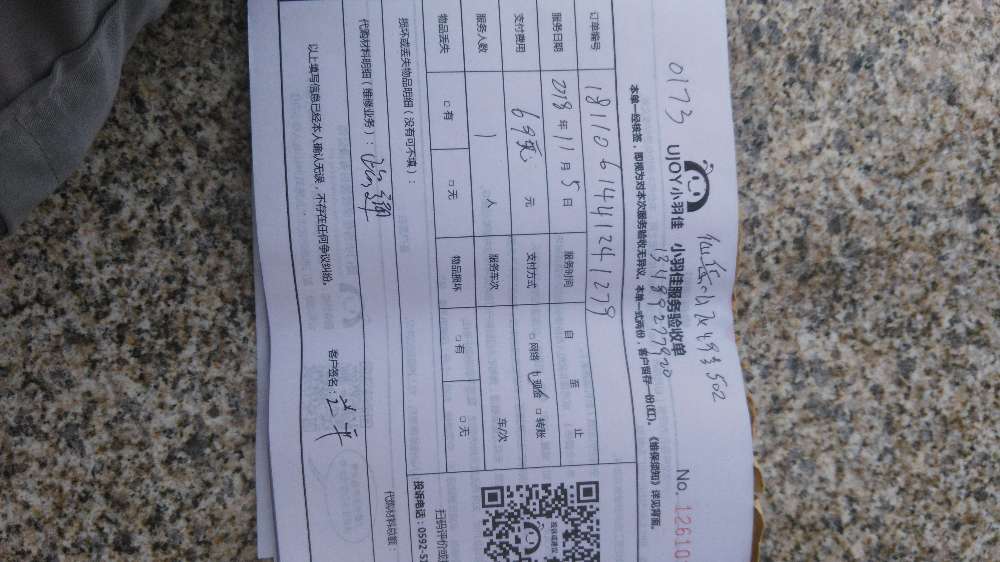 0173
仙岳小区493 502
13489277920
UJOY小羽佳 小羽佳服务验收单
No. 12610
本单一经核签，即视为对本次服务验收无异议。本单一式两份，客户留存一份(红)。《维保须知》详见背面。
订单编号 181106144124 1279
服务日期 2018 年 11 月 5 日 服务时间 自 至 止
支付费用 69 元 支付方式 □网络 □现金 □转账
服务人数 1 人 服务车次 车/次
物品丢失 □有 □无 物品损坏 □有 □无
损坏或丢失物品明细（没有可不填）：
扫码评价或
投诉电话：0592-5
代购材料明细（维修业务）：
代购材料总额：
以上填写信息已经本人确认无误，不存在任何争议纠纷。
客户签名：